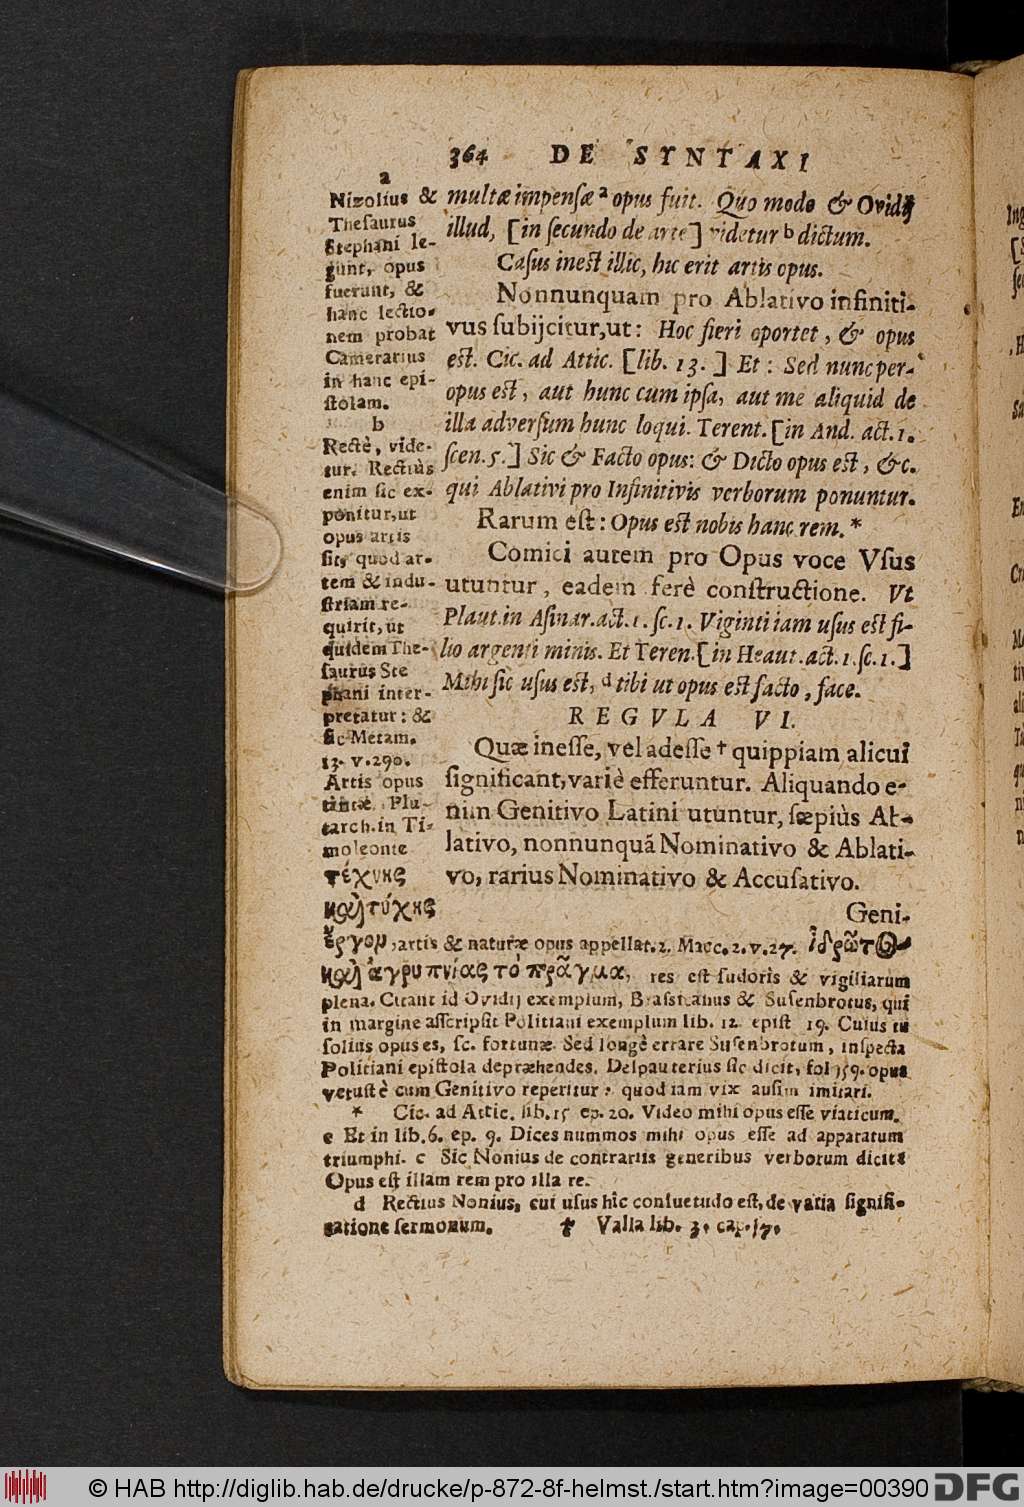 364 DE SYNTAXI
multæ impensæ ª opus fuit. Quo modo & Ovidij
illud, [in secundo de arte] videtur b dictum.
Casus inest illic, hic erit artis opus.
Nonnunquam pro Ablativo infiniti-
vus subijcitur, ut: Hoc fieri oportet, & opus
est. Cic. ad Attic. [lib. 13.] Et: Sed nunc per-
opus est, aut hunc cum ipsa, aut me aliquid de
illa adversum hunc loqui. Terent. [in And. act. 1.
scen. 5.] Sic & Facto opus: & Dicto opus est, &c.
qui Ablativi pro Infinitivis verborum ponuntur.
Rarum est: Opus est nobis hanc rem.*
Comici autem pro Opus voce Vsus
utuntur, eadem ferè constructione. Vt
Plaut. in Asinar. act. 1. sc. 1. Viginti iam usus est fi-
lio argenti minis. Et Teren. [in Heaut. act. 1. sc. 1.]
Mihi sic usus est, d tibi ut opus est facto, face.
REGVLA VI.
Quæ inesse, vel adesse † quippiam alicui
significant, variè efferuntur. Aliquando e-
nim Genitivo Latini utuntur, sæpiùs Ab-
lativo, nonnunquã Nominativo & Ablati-
vo, rarius Nominativo & Accusativo.
Geni-
a
Nizolius &
Thesaurus
Stephani le-
gunt, opus
fuerunt, &
hanc lectio-
nem probat
Camerarius
in hanc epi-
stolam.
b
Rectè, vide-
tur. Rectiùs
enim sic ex-
ponitur, ut
opus artis
sit, quod ar-
tem & indu-
striam re-
quirit, ut
quidem The-
saurus Ste
phani inter-
pretatur: &
sic Metam.
13. v. 290.
Artis opus
tantæ. Plu-
tarch. in Ti-
moleonte
τέχνης
καὶ τύχης
ἔργον, artis & naturæ opus appellat. 2. Macc. 2. v. 27. ἱδρῶτος
καὶ ἀγρυπνίας τὸ πρᾶγμα, res est sudoris & vigiliarum
plena. Citant id Ovidij exemplum, Brassicanus & Susenbrotus, qui
in margine asscripsit Politiani exemplum lib. 12. epist 19. Cuius tu
solius opus es, sc. fortunæ. Sed longè errare Susenbrotum, inspecta
Politiani epistola depræhendes. Delpauterius sic dicit, fol 159. opus
vetustè cum Genitivo reperitur: quod iam vix ausim imitari.
* Cic. ad Attic. lib. 15 ep. 20. Video mihi opus esse viaticum.
e Et in lib. 6. ep. 9. Dices nummos mihi opus esse ad apparatum
triumphi. c Sic Nonius de contrariis generibus verborum dicit:
Opus est illam rem pro illa re.
d Rectius Nonius, cui usus hìc consuetudo est, de varia signifi-
catione sermonum. † Valla lib. 3. cap. 17.
© HAB http://diglib.hab.de/drucke/p-872-8f-helmst./start.htm?image=00390 DFG